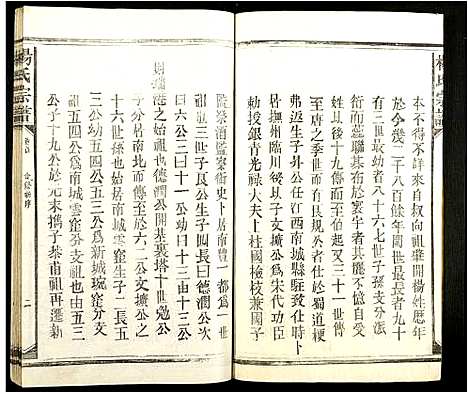 楊氏宗譜
本不得不詳來自叔向祖肇開楊姓歷年
於今幾二千八百餘年閱世最長者九十
世最幼者八十六七世子孫支分派衍
而荃聯慕布於寰宇者其庶幾可
姓以後十九傳而至伯起又三十一世傳
至唐之季世而有民規公者仕於蜀道梗
不返生子外公任江西南城縣駝發迁
居撫州臨川梁以子文壙公為宋代功臣
勅授銀青光祿大夫上柱國檢校兼國子
監祭酒監察御史卜居南豐一都為一世
祖及四世子良公生子四長曰德潤公以
港之始祖曰德淵公開基裏塔十世勉公
生子六曰一公三曰十三公由十三公
十六世孫也始居南城雲窟生子二長五
子分居南北而傳至於六二公文壙公之
四公幼五四公五三公為新城琉窟分支
祖五四公為南城雲窟分支祖也由五三
公子十九公於元末携子恭甫祖再遷新
楊氏宗譜
卷首
二